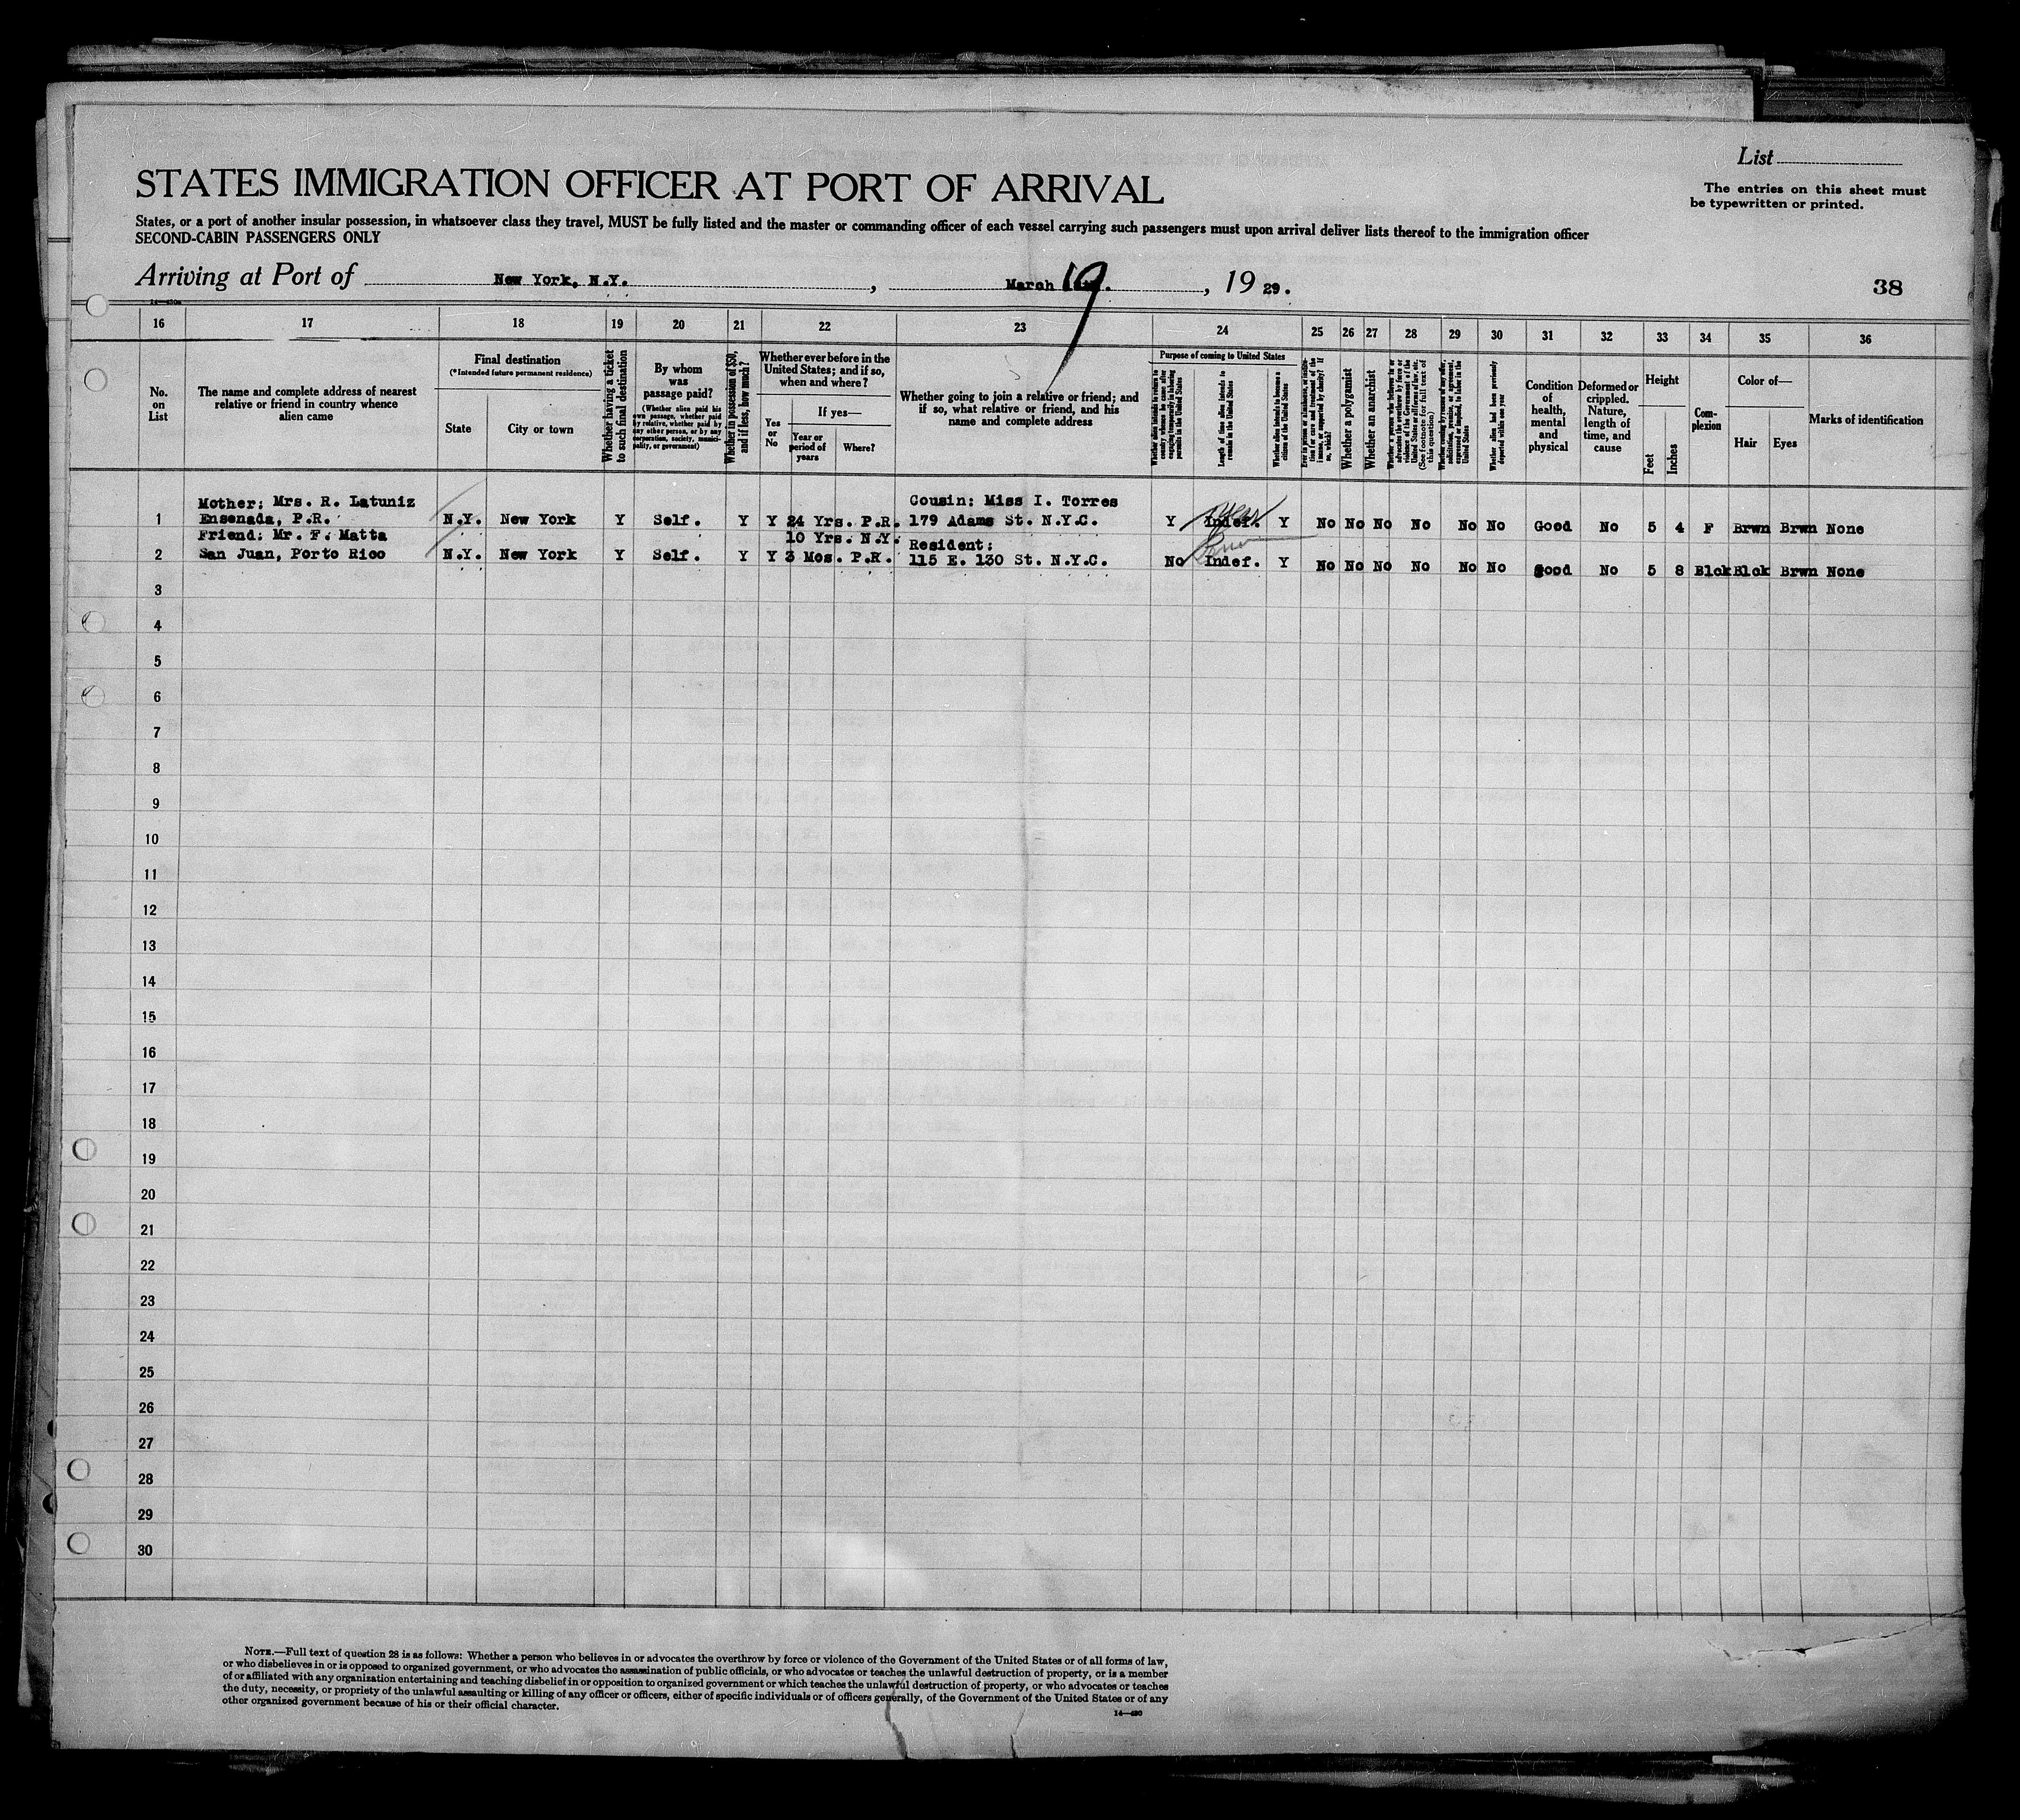 List
STATES IMMIGRATION OFFICER AT PORT OF ARRIVAL
The entries on this sheet must
be typewritten or printed.
States, or a port of another insular possession, in whatsoever class they travel, MUST be fully listed and the master or commanding officer of each vessel carrying such passengers must upon arrival deliver lists thereof to the immigration officer
SECOND-CABIN PASSENGERS ONLY
Arriving at Port of New York, N.Y., March 19, 1929.
38
16 17 18 19 20 21 22 23 24 25 26 27 28 29 30 31 32 33 34 35 36
No. on List
The name and complete address of nearest
relative or friend in country whence
alien came
Final destination
(*Intended future permanent residence)
State
City or town
Whether having a ticket
to such final destination
By whom
was
passage paid?
(Whether alien paid his
own passage, whether paid
by relative, whether paid by
any other person, or by any
corporation, society, munici-
pality, or government)
Whether in possession of $50,
and if less, how much?
Whether ever before in the
United States; and if so,
when and where?
Yes
or
No
If yes—
Year or
period of
years
Where?
Whether going to join a relative or friend; and
if so, what relative or friend, and his
name and complete address
Purpose of coming to United States
Whether alien intends to return to
country whence he came after
engaging temporarily in laboring
pursuits in the United States
Length of time alien intends to
remain in the United States
Whether alien intends to become a
citizen of the United States
Whether a polygamist
Whether an anarchist
(See footnote for full text of
this question)
Whether alien had been previously
deported within one year
Condition
of
health,
mental
and
physical
Deformed or
crippled.
Nature,
length of
time, and
cause
Height
Feet
Inches
Com-
plexion
Color of—
Hair
Eyes
Marks of identification
Mother: Mrs. R. Latuniz
Cousin: Miss I. Torres
1 Ensenada, P.R. N.Y. New York Y Self. Y Y 24 Yrs. P.R. 179 Adams St. N.Y.C. Y Indef. Y No No No No No No Good No 5 4 F Brwn Brwn None
Friend: Mr. F. Matta 10 Yrs. N.Y. Resident:
2 San Juan, Porto Rico N.Y. New York Y Self. Y Y 3 Mos. P.R. 115 E. 130 St. N.Y.C. No Indef. Y No No No No No No good No 5 8 Blck Blck Brwn None
3
4
5
6
7
8
9
10
11
12
13
14
15
16
17
18
19
20
21
22
23
24
25
26
27
28
29
30
NOTE.—Full text of question 28 is as follows: Whether a person who believes in or advocates the overthrow by force or violence of the Government of the United States or of all forms of law,
or who disbelieves in or is opposed to organized government, or who advocates the assassination of public officials, or who advocates or teaches the unlawful destruction of property, or is a member
of or affiliated with any organization entertaining and teaching disbelief in or opposition to organized government or which teaches the unlawful destruction of property, or who advocates or teaches
the duty, necessity, or propriety of the unlawful assaulting or killing of any officer or officers, either of specific individuals or of officers generally, of the Government of the United States or of any
other organized government because of his or their official character.
14—430